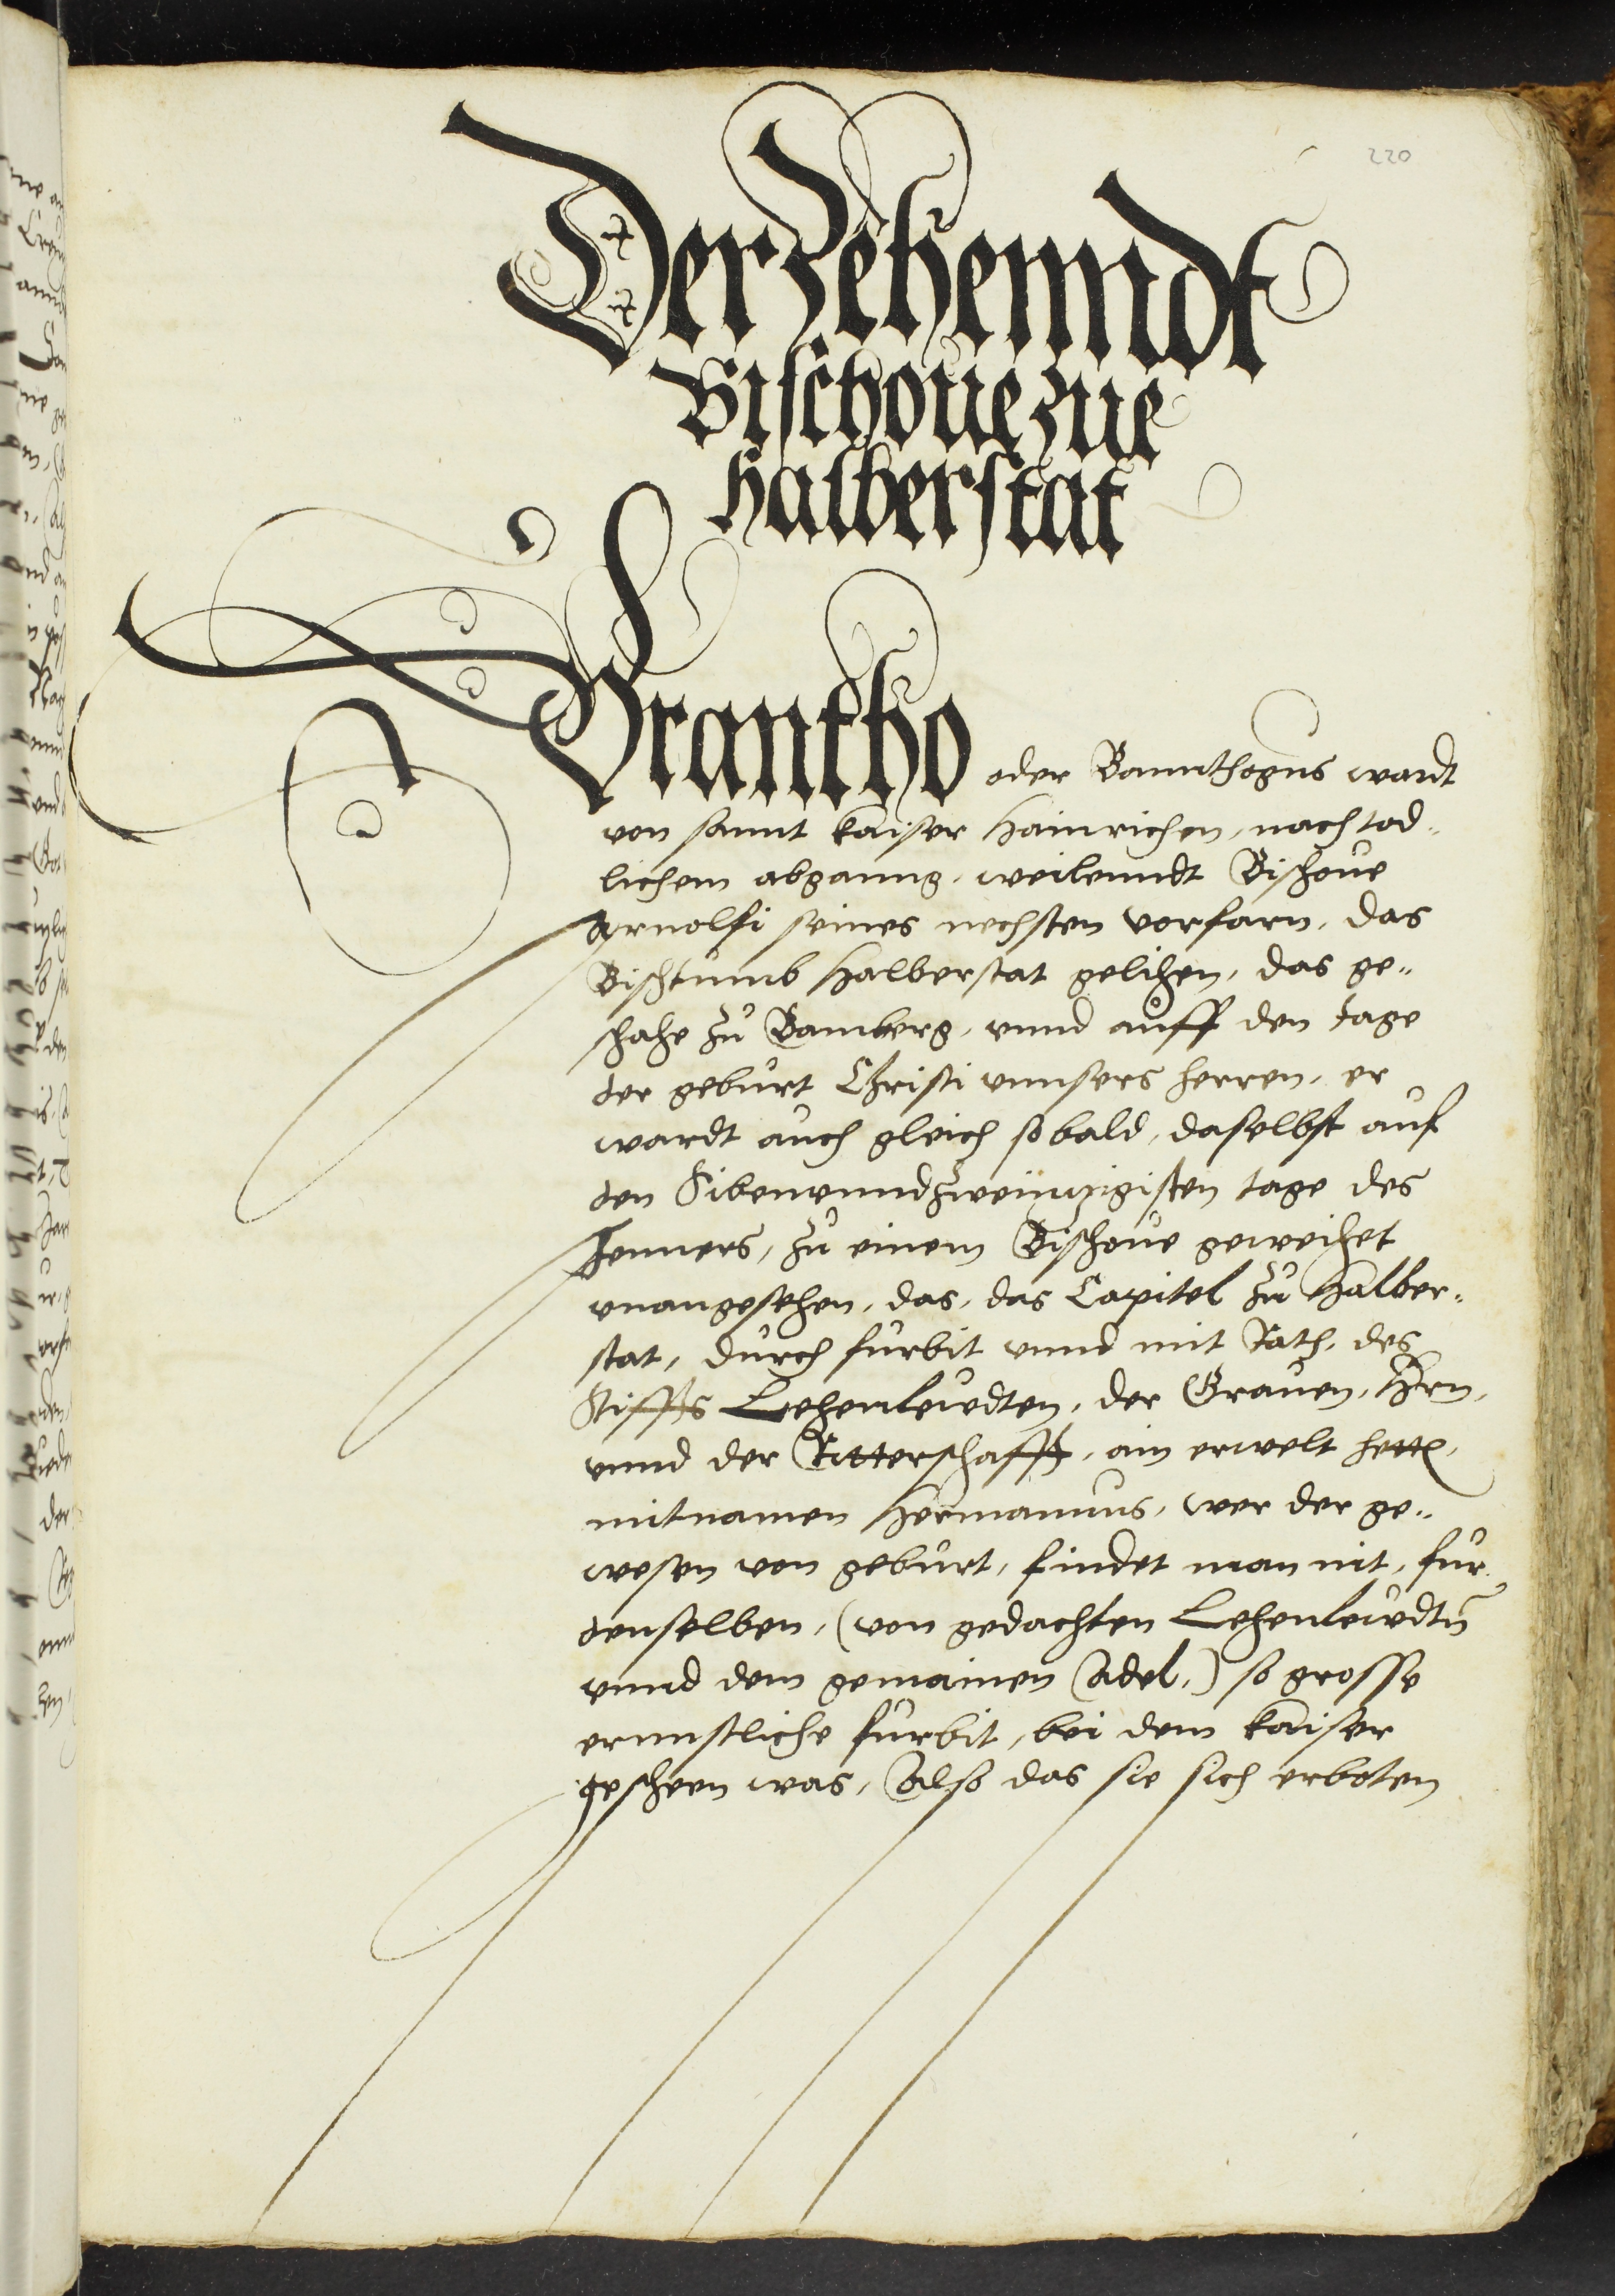 220
Der Zehenndt
Bischoue zue
Halberstat
Brantho oder Bannthogus wardt
von sannt kaiser Hainrichen, nach tod-
lichem abganng, weilenndt Bischoue
Arnolfi seines nechsten vorfarn, das
Bischtumb Halberstat gelihen, das ge-
schahe zu Bamberg, vnnd auff den tage
der geburt Christi vnnsers herren, er
wardt auch gleich so bald, daselbst auf
den Sibenvnndzweinzigisten tage des
Jenners, zu einem Bischoue geweihet
vnangesehen, das, das Capitel zu Halber-
stat, durch furbit vnnd mit Rath, des
Stiffts Lehenleudten, der Grauen, Hrn,
vnnd der Ritterschafft, ain erwelt hett,
mitnamen Hermannus, wer der ge-
wesen von geburt, findet man nit, fur
denselben, (von gedachten Lehenleudtn
vnnd dem gemainen Adel,) so grosse
ernnstliche furbit, bei dem kaiser
gescheen was, Also das sie sich erboten